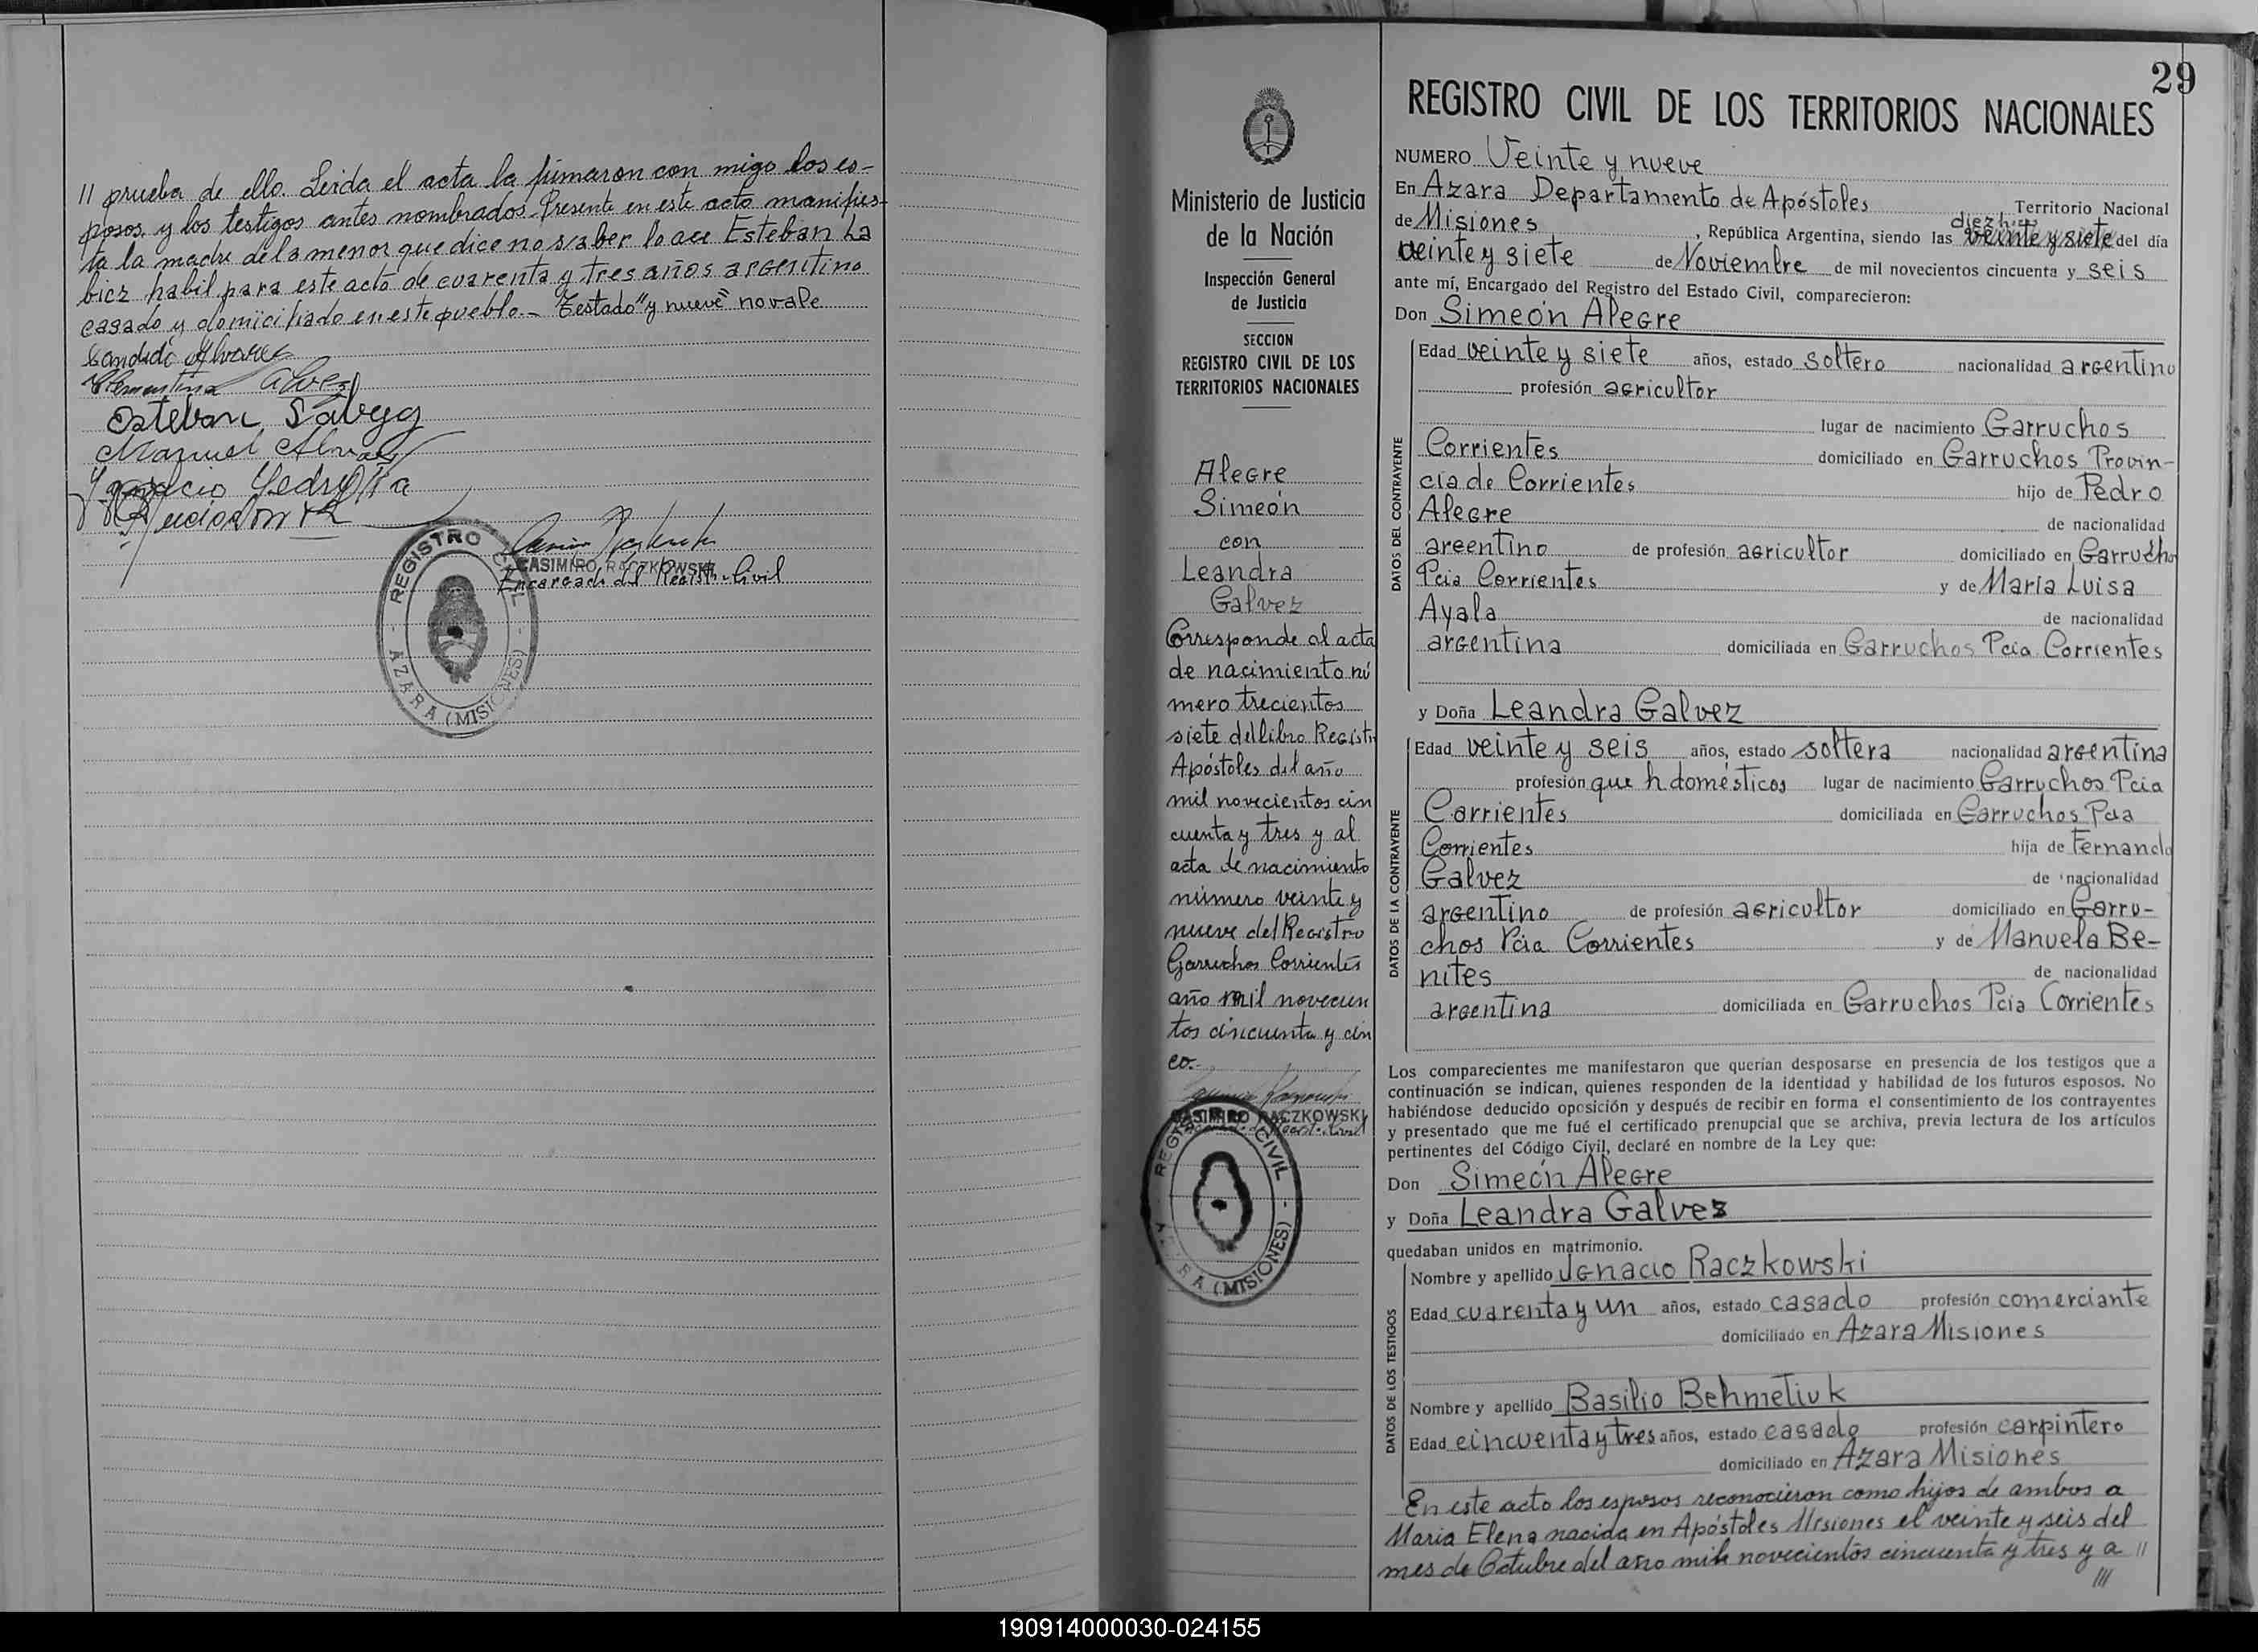 // prueba de ello. Leida el acta la firmaron con migo los es-
posos, y los testigos antes nombrados. Presente en este acto manifies-
ta la madre de la menor que dice no saber lo ace Esteban La
bicz habil para este acto de cuarenta y tres años argentino
casado y domiciliado en este pueblo.- Testado "y nueve" no vale
Esteban Labyg
Manuel
Ignacio
REGISTRO CIVIL
CASIMIRO RACZKOWSKI
Encargado del Registro Civil
- AZARA (MISIONES) -
Ministerio de Justicia
de la Nación
Inspección General
de Justicia
SECCION
REGISTRO CIVIL DE LOS
TERRITORIOS NACIONALES
Alegre
Simeón
con
Leandra
Galvez
Corresponde al acta
de nacimiento nú
mero trecientos
siete del libro Registr
Apóstoles del año
mil novecientos cin
cuenta y tres y al
acta de nacimiento
número veinte y
nueve del Registro
Garruchos Corrientes
año mil novecien
tos cincuenta y cin
co.-
CASIMIRO RACZKOWSKI
REGISTRO CIVIL
- AZARA (MISIONES) -
29
REGISTRO CIVIL DE LOS TERRITORIOS NACIONALES
NUMERO Veinte y nueve
En Azara Departamento de Apóstoles Territorio Nacional
de Misiones, República Argentina, siendo las veinte y siete del día
veinte y siete de Noviembre de mil novecientos cincuenta y seis
ante mí, Encargado del Registro del Estado Civil, comparecieron:
Don Simeón Alegre
DATOS DEL CONTRAYENTE
Edad veinte y siete años, estado soltero nacionalidad argentino
profesión agricultor
lugar de nacimiento Garruchos
Corrientes domiciliado en Garruchos Provin-
cia de Corrientes hijo de Pedro
Alegre de nacionalidad
argentino de profesión agricultor domiciliado en Garrucho
Pcia Corrientes y de María Luisa
Ayala de nacionalidad
argentina domiciliada en Garruchos Pcia Corrientes
y Doña Leandra Galvez
DATOS DE LA CONTRAYENTE
Edad veinte y seis años, estado soltera nacionalidad argentina
profesión que h domésticos lugar de nacimiento Garruchos Pcia
Corrientes domiciliada en Garruchos Pcia
Corrientes hija de Fernando
Galvez de nacionalidad
argentino de profesión agricultor domiciliado en Garru-
chos Pcia Corrientes y de Manuela Be-
nites de nacionalidad
argentina domiciliada en Garruchos Pcia Corrientes
Los comparecientes me manifestaron que querían desposarse en presencia de los testigos que a
continuación se indican, quienes responden de la identidad y habilidad de los futuros esposos. No
habiéndose deducido oposición y después de recibir en forma el consentimiento de los contrayentes
y presentado que me fué el certificado prenupcial que se archiva, previa lectura de los artículos
pertinentes del Código Civil, declaré en nombre de la Ley que:
Don Simeón Alegre
y Doña Leandra Galvez
quedaban unidos en matrimonio.
DATOS DE LOS TESTIGOS
Nombre y apellido Ignacio Raczkowski
Edad cuarenta y un años, estado casado profesión comerciante
domiciliado en Azara Misiones
Nombre y apellido Basilio Behmetiuk
Edad cincuenta y tres años, estado casado profesión carpintero
domiciliado en Azara Misiones
En este acto los esposos reconocieron como hijos de ambos a
Maria Elena nacida en Apóstoles Misiones el veinte y seis del
mes de Octubre del año mil novecientos cincuenta y tres y a //
///
190914000030-024155